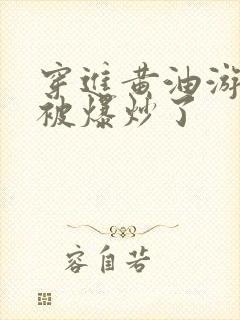 穿进黄油游
被爆炒了
容自若